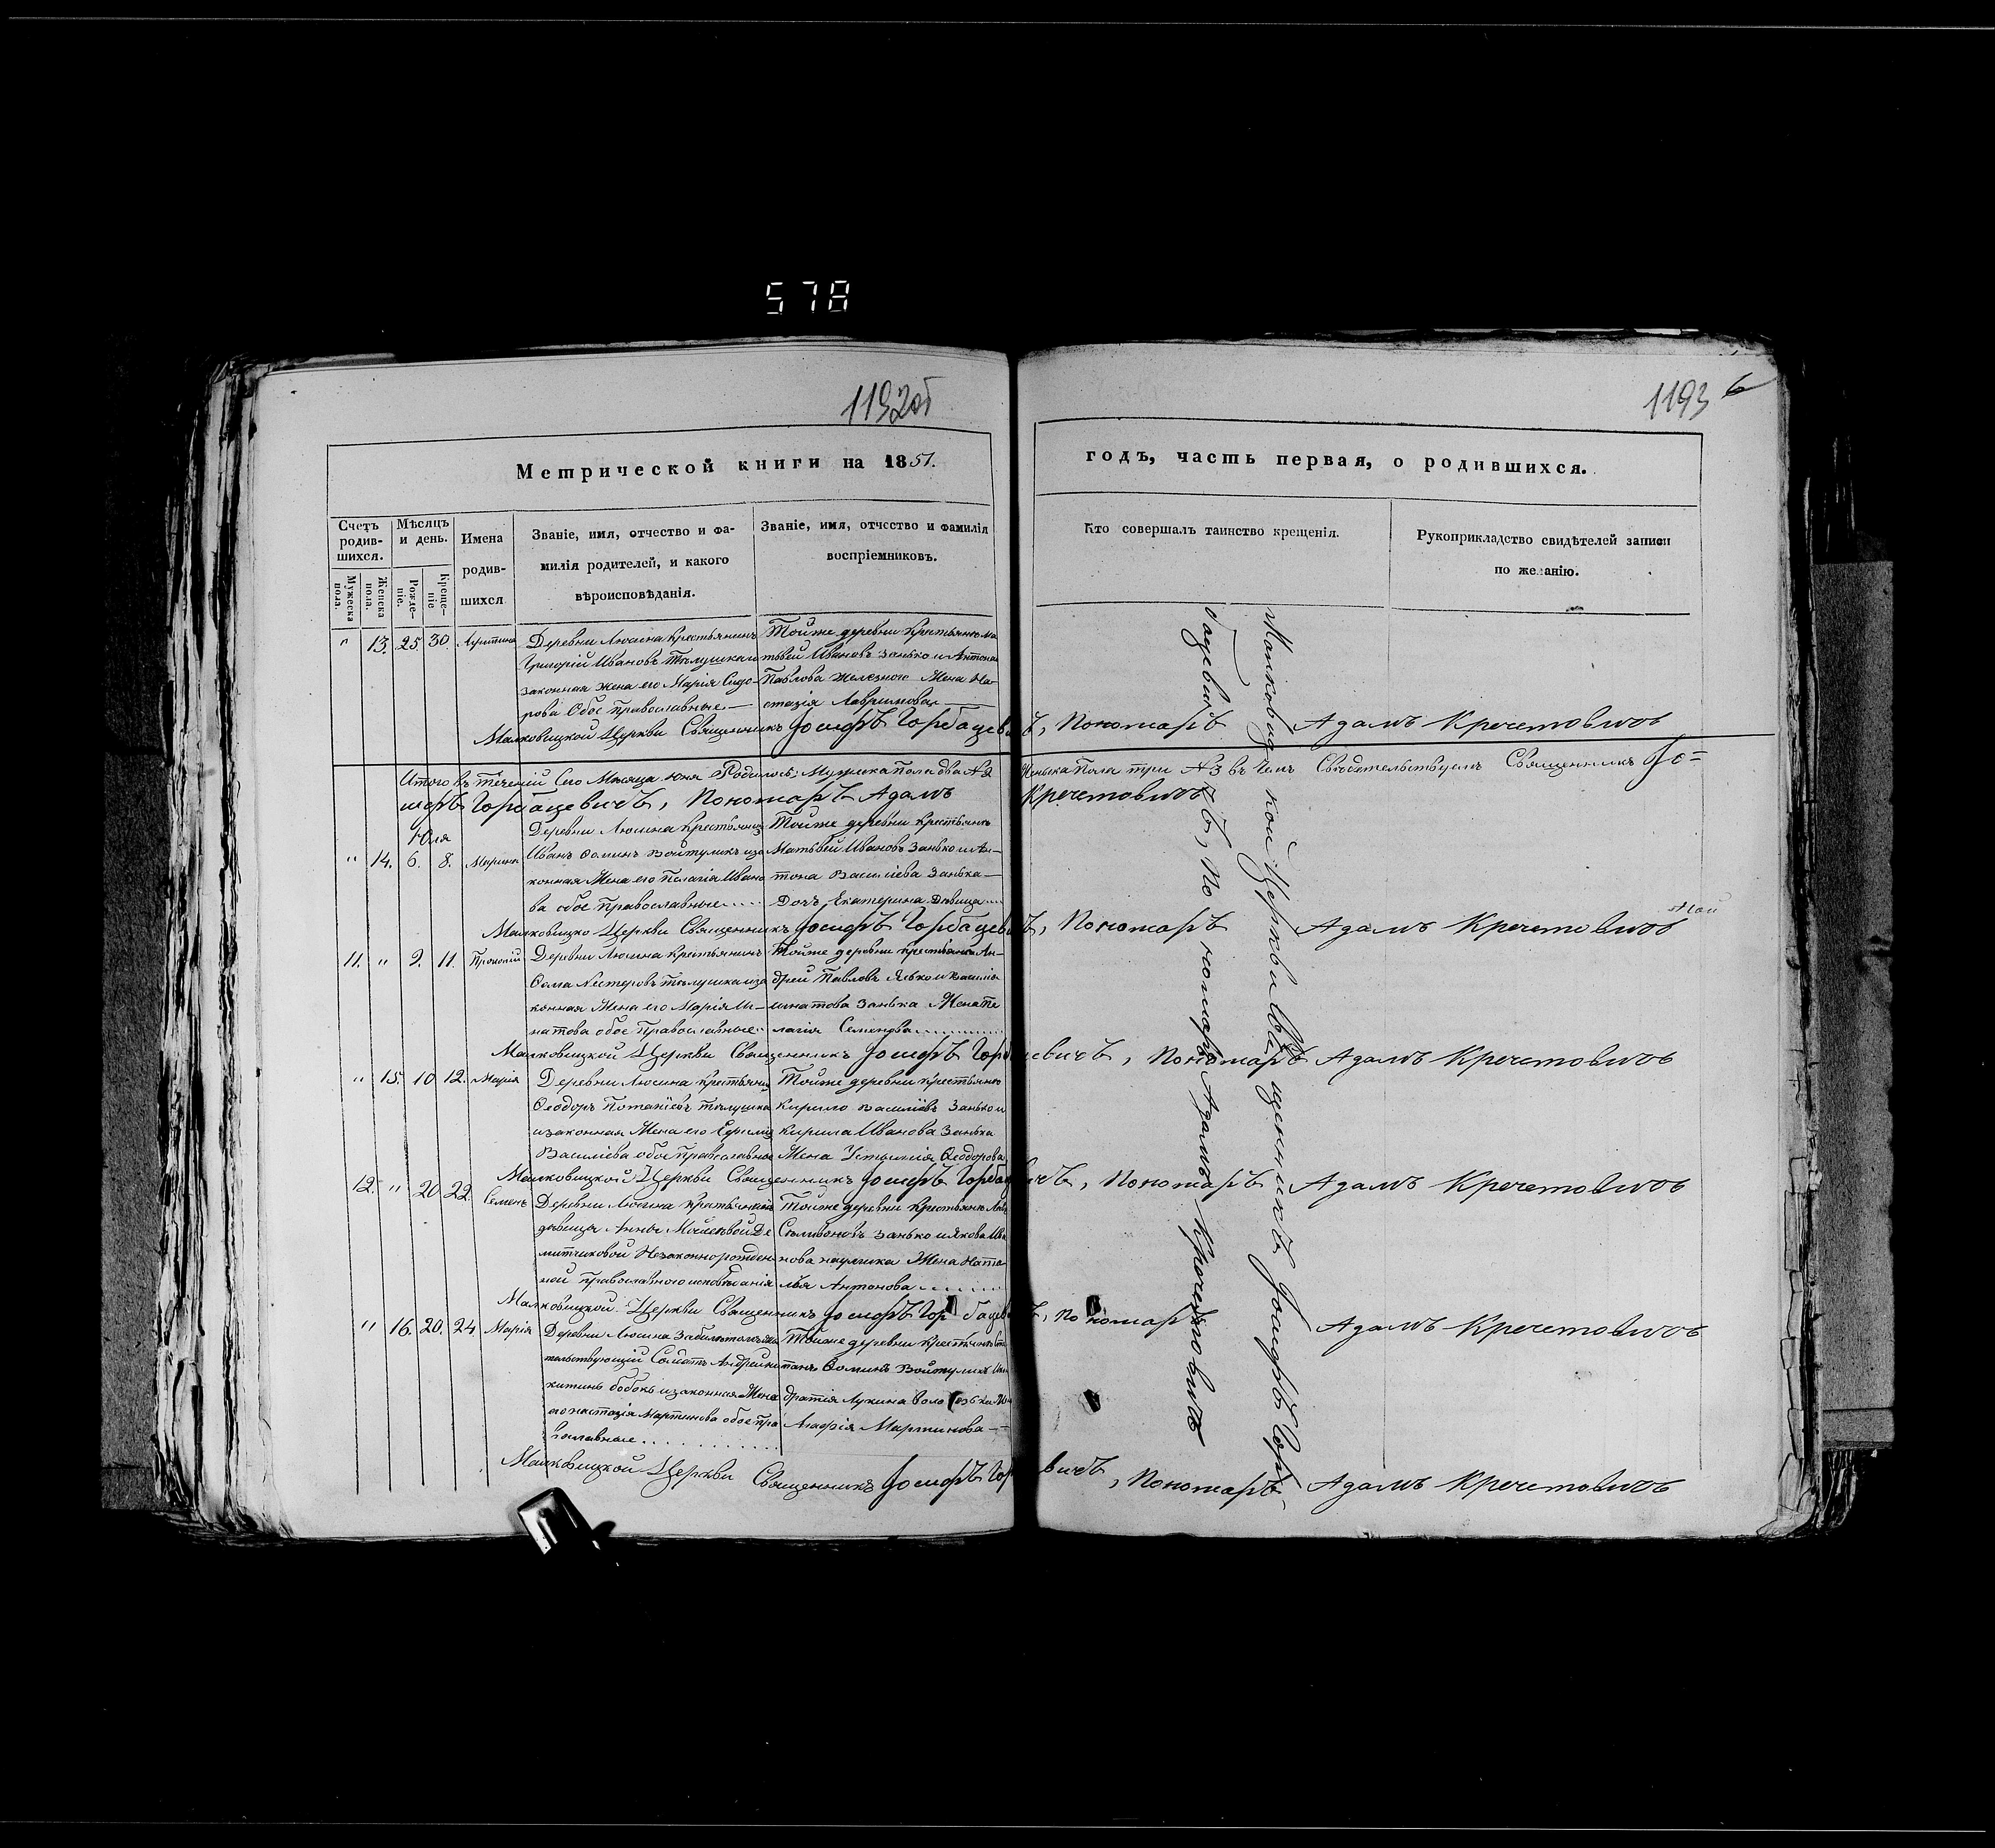 578
1192об
1193 6
Метрической книги на 1851.
годъ, часть первая, о родившихся.
Счетъ родив-шихся.
Мужеска пола.
Женска пола.
Мѣсяцъ и день.
Рожде-ніе.
Креще-ніе
Имена родив-шихся
Званіе, имя, отчество и фа-
милія родителей, и какого
вѣроисповѣданія.
Званіе, имя, отчество и фамилія
воспріемниковъ.
Кто совершалъ таинство крещенія.
Рукоприкладство свидѣтелей записи
по желанію.
" 13. 25. 30.
Деревни Люсина Крестьянинъ
Григорій Ивановъ
законная жена его Марія Сидо-
рова Обое Православные
Тойже деревни Крестьяне Ма-
твей Ивановъ Занько и Антона
Павлова Железного Жена На-
стазія
Малковицкой Церкви Священникъ Іосифъ Горбацевичъ, Пономаръ Адамъ Кречетовичъ
Итого въ теченіи Сего Месяца Юня Родилось: Мужеска Пола два №2 Женска Пола три №3 въ Чемъ Свѣдетельствуемъ Священникъ Іо=
сифъ Горбацевичъ, Пономаръ Адамъ Кречетовичъ
Юля
" 14. 6. 8. Марина
Деревни Люсина Крестьянинъ
Иванъ Ѳоминъ Войтуликъ иза
конная Жена его Пелагія Ивано
ва обое Православные
Тойже деревни Крестьяне
Матьвей Ивановъ Занько и Ан-
тона Василіева Занька
Дочь Екатерина Девица
Малковицко Церкви Священникъ Іосифъ Горбацевичъ, Пономаръ Адамъ Кречетовичъ
11. " 9. 11. Прокопій
Деревни Люсина Крестьянинъ
Ѳома Нестеровъ иза
конная Жена его Марія И-
натова обое Православные
Тойже деревни Крестьяне Ан-
дрей Павловъ
Игнатова Занька Жена Пе
лагія Семенова
Малковицкой Церкви Священникъ Іосифъ Горбацевичъ, Пономаръ Адамъ Кречетовичъ
" 15. 10. 12. Марія
Деревни Люсина Крестьянинъ
Ѳеодоръ
изаконная Жена его
Василіева обое Православные
Тойже деревни Крестьяне
Кирило Василіевъ Занько и
Кирила Иванова Занька
Жена Ѳеодорова
Малковицкой Церкви Священникъ Іосифъ Горбацевичъ, Пономаръ Адамъ Кречетовичъ
12. " 20. 22. Семенъ
Деревни Люсина Крестьянки
девицы Анны
Незаконнорожден
ной Православного исповѣданія
Тойже деревни Крестьяне
Занько и Якова Ива
нова Жена Ната
лья Антонова
Малковицкой Церкви Священникъ Іосифъ Горбацевичъ, Пономаръ Адамъ Кречетовичъ
" 16. 20. 24. Марія
Деревни Люсина
Солдатъ Андрей Ни
китинъ Бобокъ изаконная Жена
его Настазія Мартинова обое Пра
вославные
Тойже деревни Крестьяне
Ѳоминъ Войтуликъ
Лукина
Агафія Мартинова
Малковицкой Церкви Священникъ Іосифъ Горбацевичъ, Пономаръ Адамъ Кречетовичъ
Малковицкой Церкви Священникъ Іосифъ Горбацевичъ, Пономаръ Адамъ Кречетовичъ